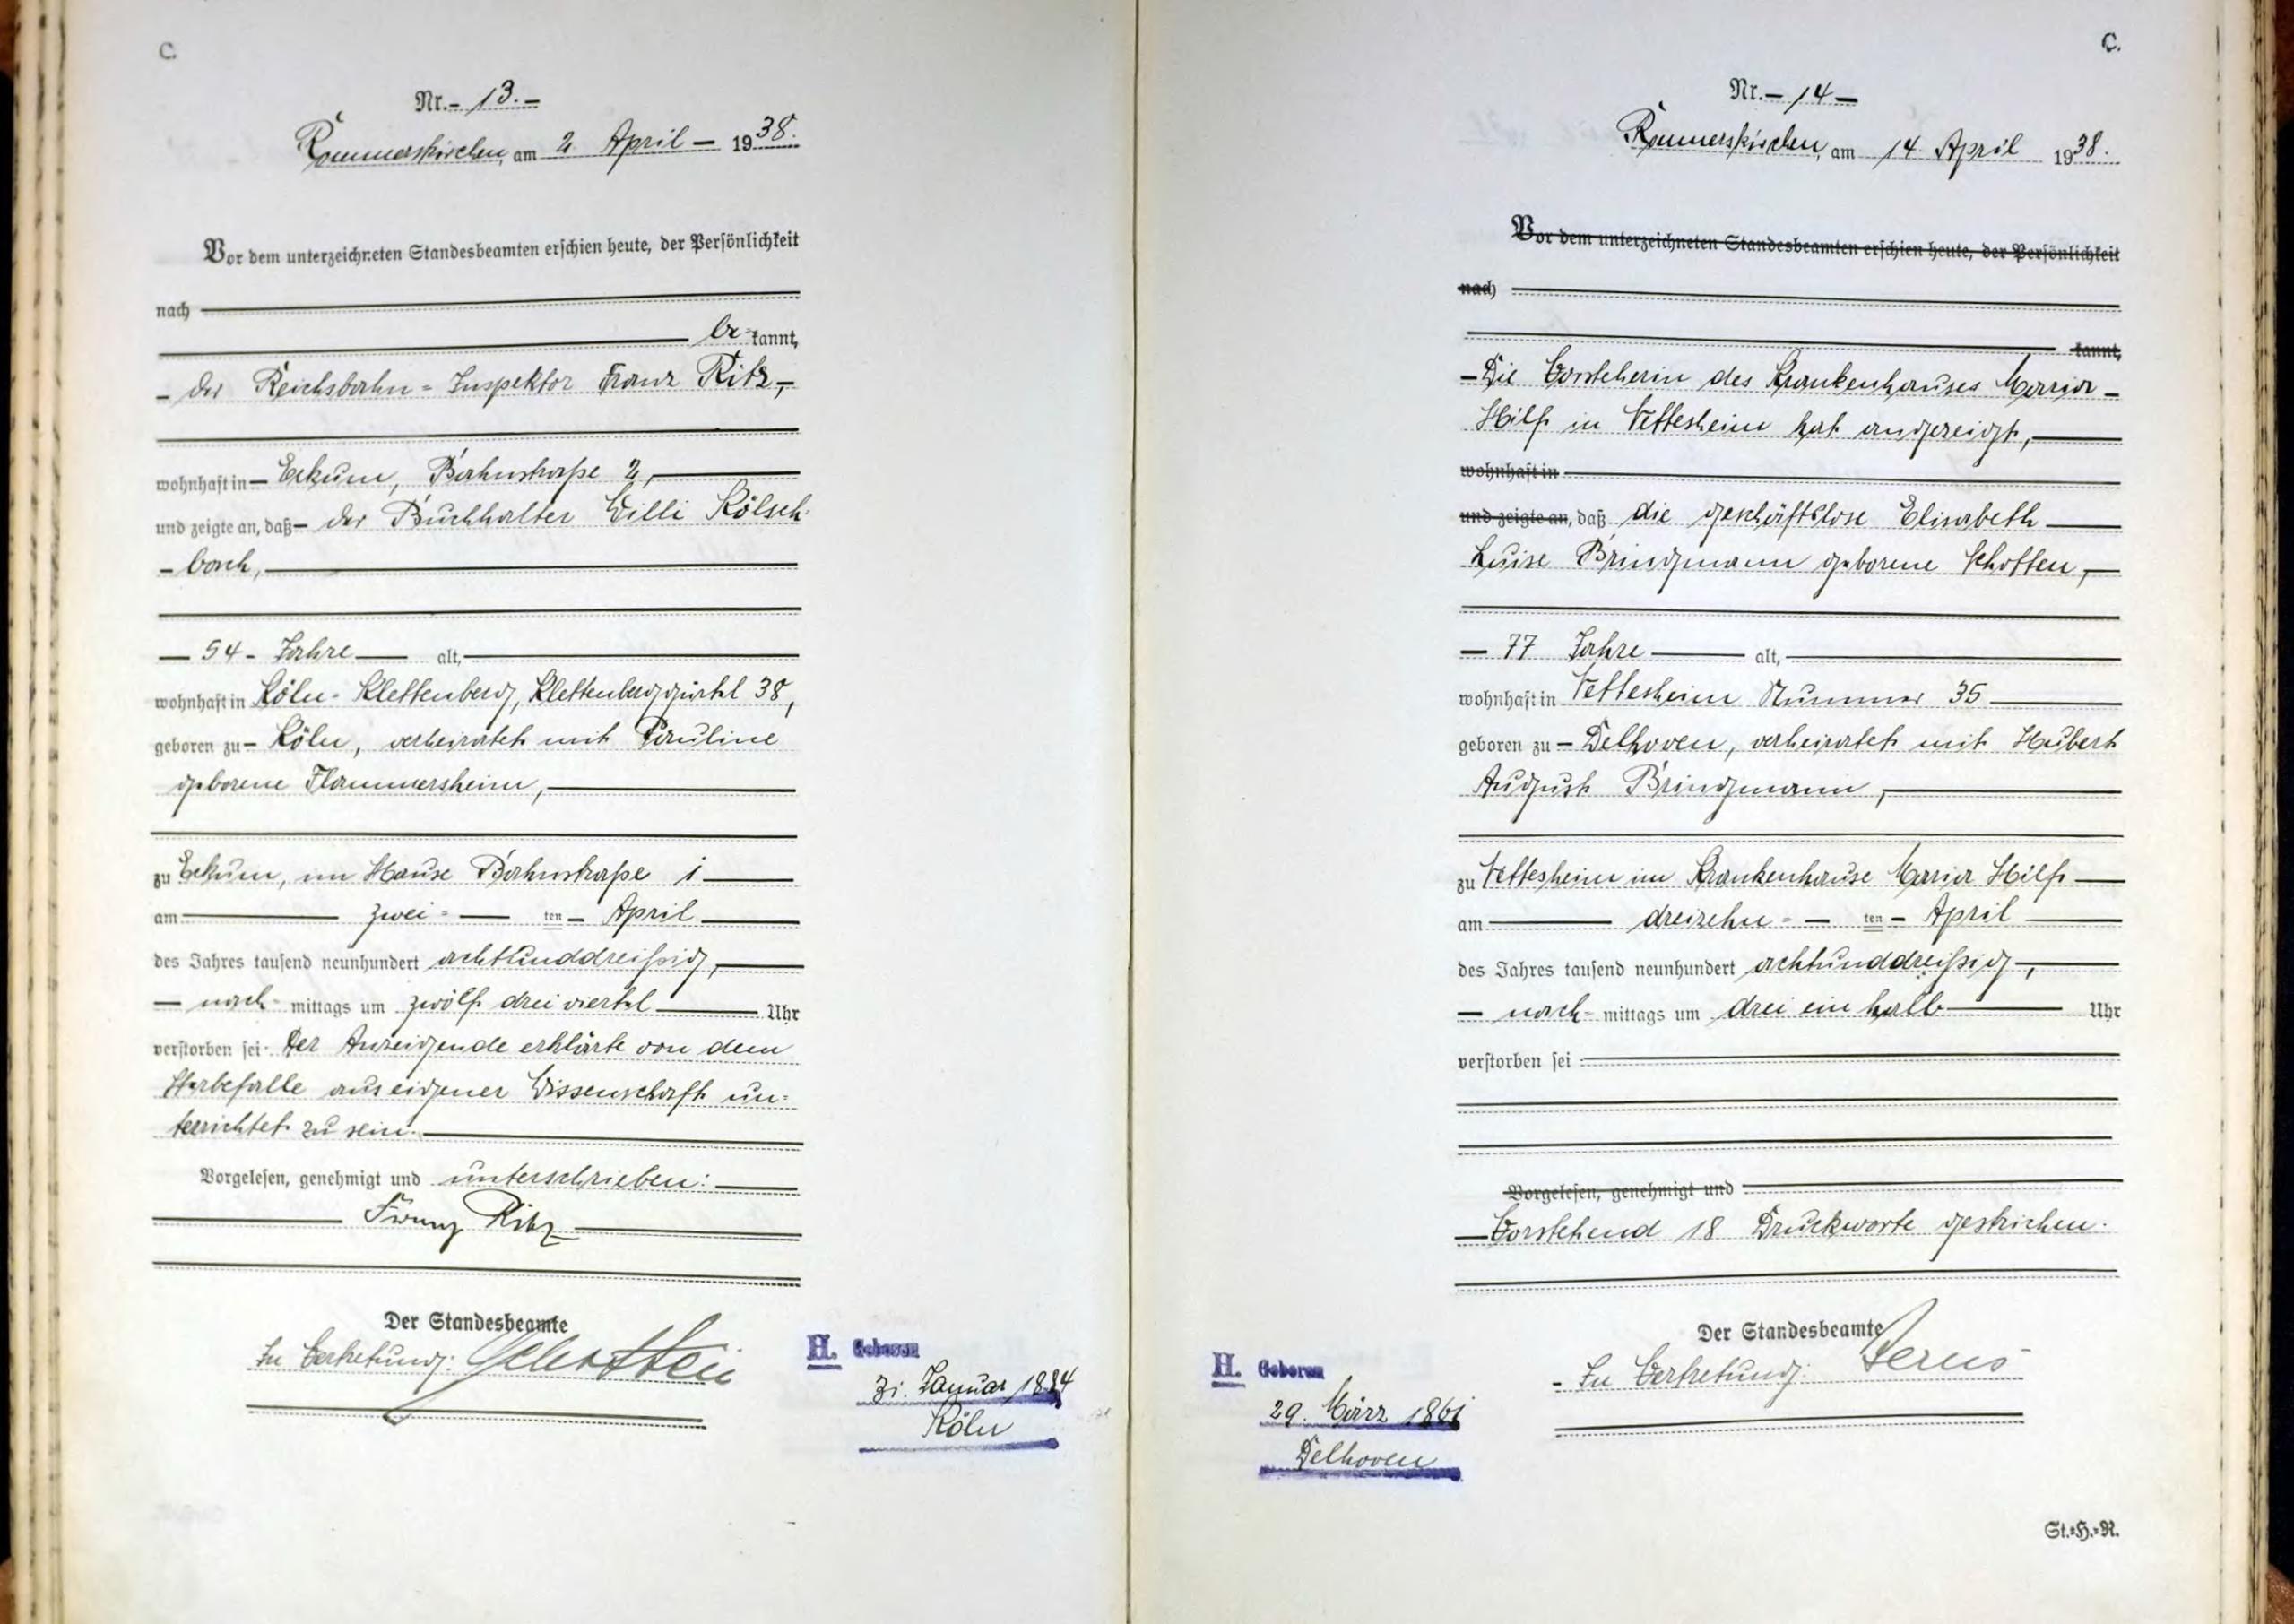 C.
Nr. - 13. -
Rommerskirchen, am 2. April - 1938.
Vor dem unterzeichneten Standesbeamten erschien heute, der Persönlichkeit
nach
be kannt,
- der Reichsbahn = Inspektor Franz Ritz, -
wohnhaft in - Eckum, Bahnstraße 2,
und zeigte an, daß - der Buchhalter Willi Kölsch-
- bach,
- 54 - Jahre - alt,
wohnhaft in Köln - Klettenberg, Klettenberggürtel 38,
geboren zu - Köln, verheiratet mit Pauline
geborene Flammersheim,
zu Eckum, im Hause Bahnstraße 1
am - zwei = - ten - April
des Jahres tausend neunhundert achtunddreißig,
- nach = mittags um zwölf drei viertel Uhr
verstorben sei. Der Anzeigende erklärte von dem
Sterbefalle aus eigener Wissenschaft un=
terrichtet zu sein.
Vorgelesen, genehmigt und unterschrieben:
Franz Ritz
Der Standesbeamte
In Vertretung:
H. Geboren
31. Januar 1884
Köln
C.
Nr. - 14 -
Rommerskirchen, am 14. April 1938.
Vor dem unterzeichneten Standesbeamten erschien heute, der Persönlichkeit
nach
kannt,
- Die Vorsteherin des Krankenhauses Maria -
Hilf in Nettesheim hat angezeigt,
wohnhaft in
und zeigte an, daß die geschäftslose Elisabeth
Luise Bringmann geborene Schotten,
- 77 Jahre - alt,
wohnhaft in Nettesheim Nummer 35
geboren zu - Delhoven, verheiratet mit Hubert
August Bringmann,
zu Nettesheim im Krankenhause Maria Hilf
am - dreizehn = - ten - April
des Jahres tausend neunhundert achtunddreißig,
- nach = mittags um drei ein halb Uhr
verstorben sei
Vorgelesen, genehmigt und
- Vorstehend 18 Druckworte gestrichen.
Der Standesbeamte
- In Vertretung:
H. Geboren
29. März 1861
Delhoven
St.=H.=R.